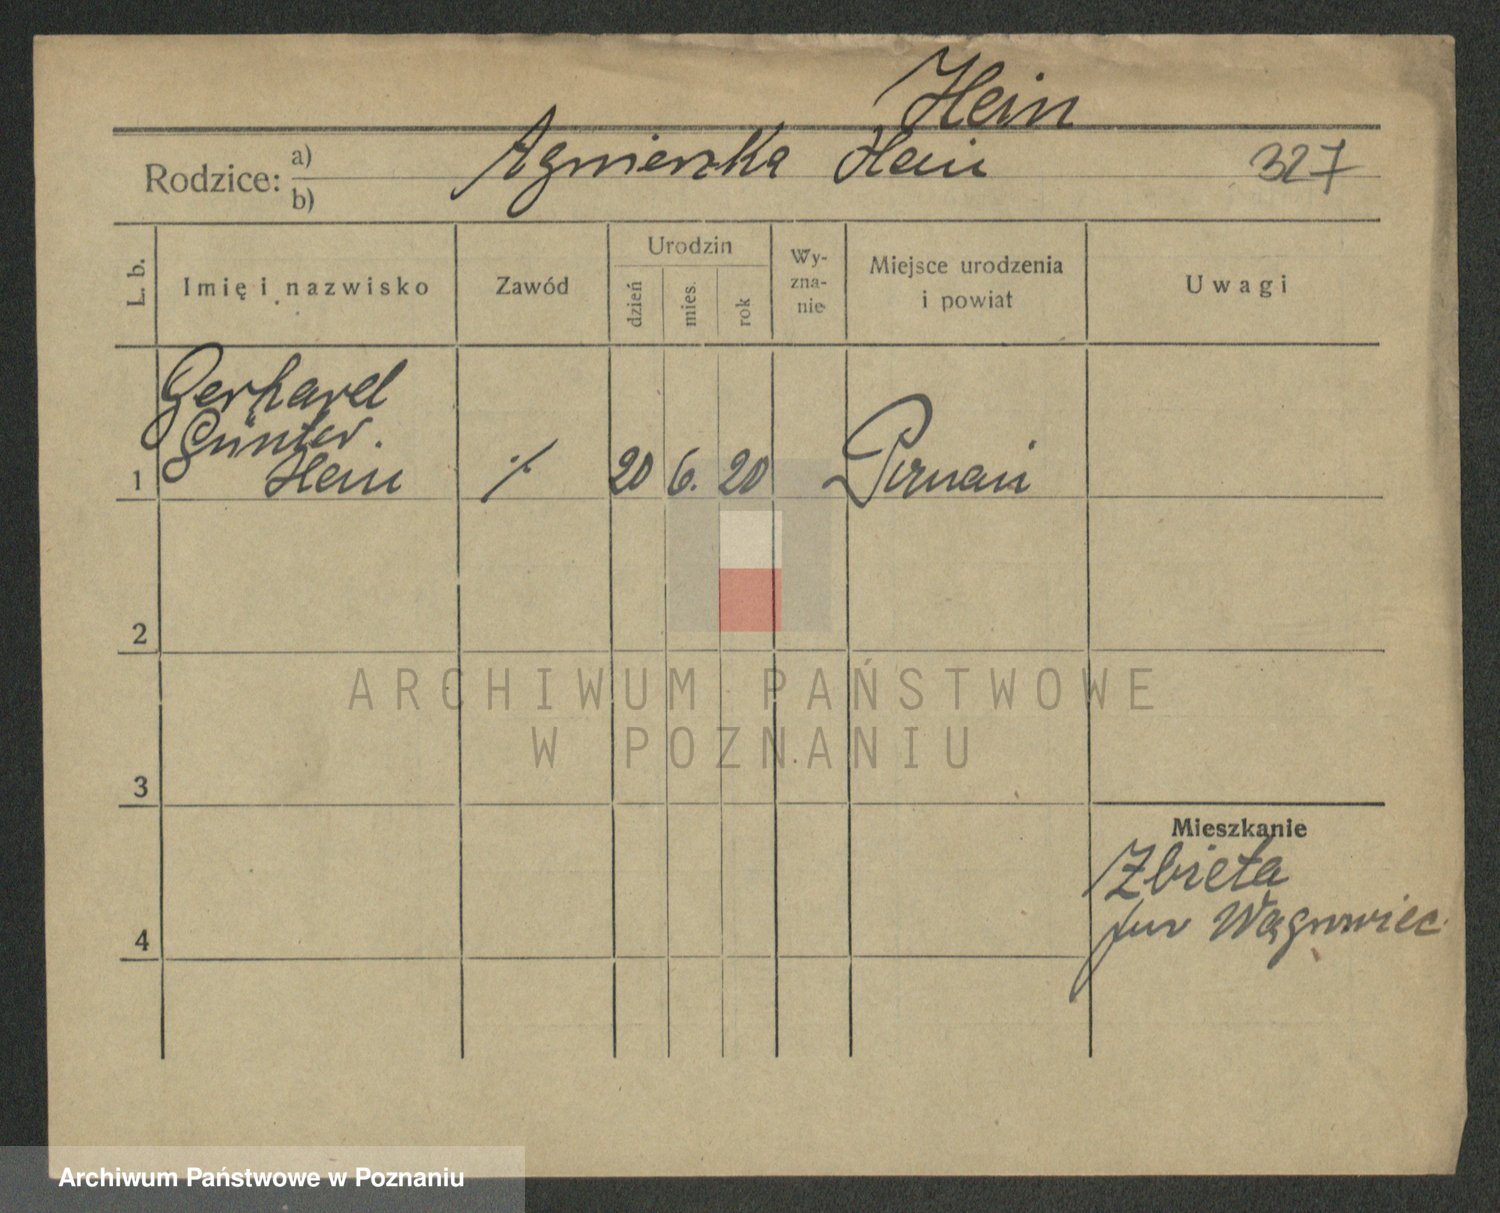 Hein
Rodzice: a) Agnieszka Hein 327
b)
L. b.
Imię i nazwisko
Zawód
Urodzin
dzień
mies.
rok
Wy-
zna-
nie
Miejsce urodzenia
i powiat
Uwagi
Gerhard
Günter.
1 Hein ·/. 20 6. 20 Poznań
2
ARCHIWUM PAŃSTWOWE
W POZNANIU
3
Mieszkanie
Zbieta
pow Wągrowiec
4
Archiwum Państwowe w Poznaniu